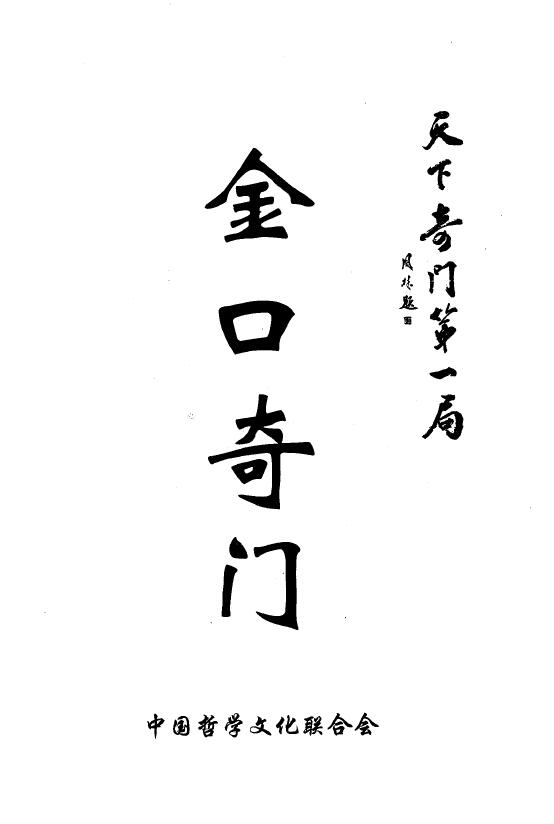 天下奇门第一局
金口奇门
中国哲学文化联合会